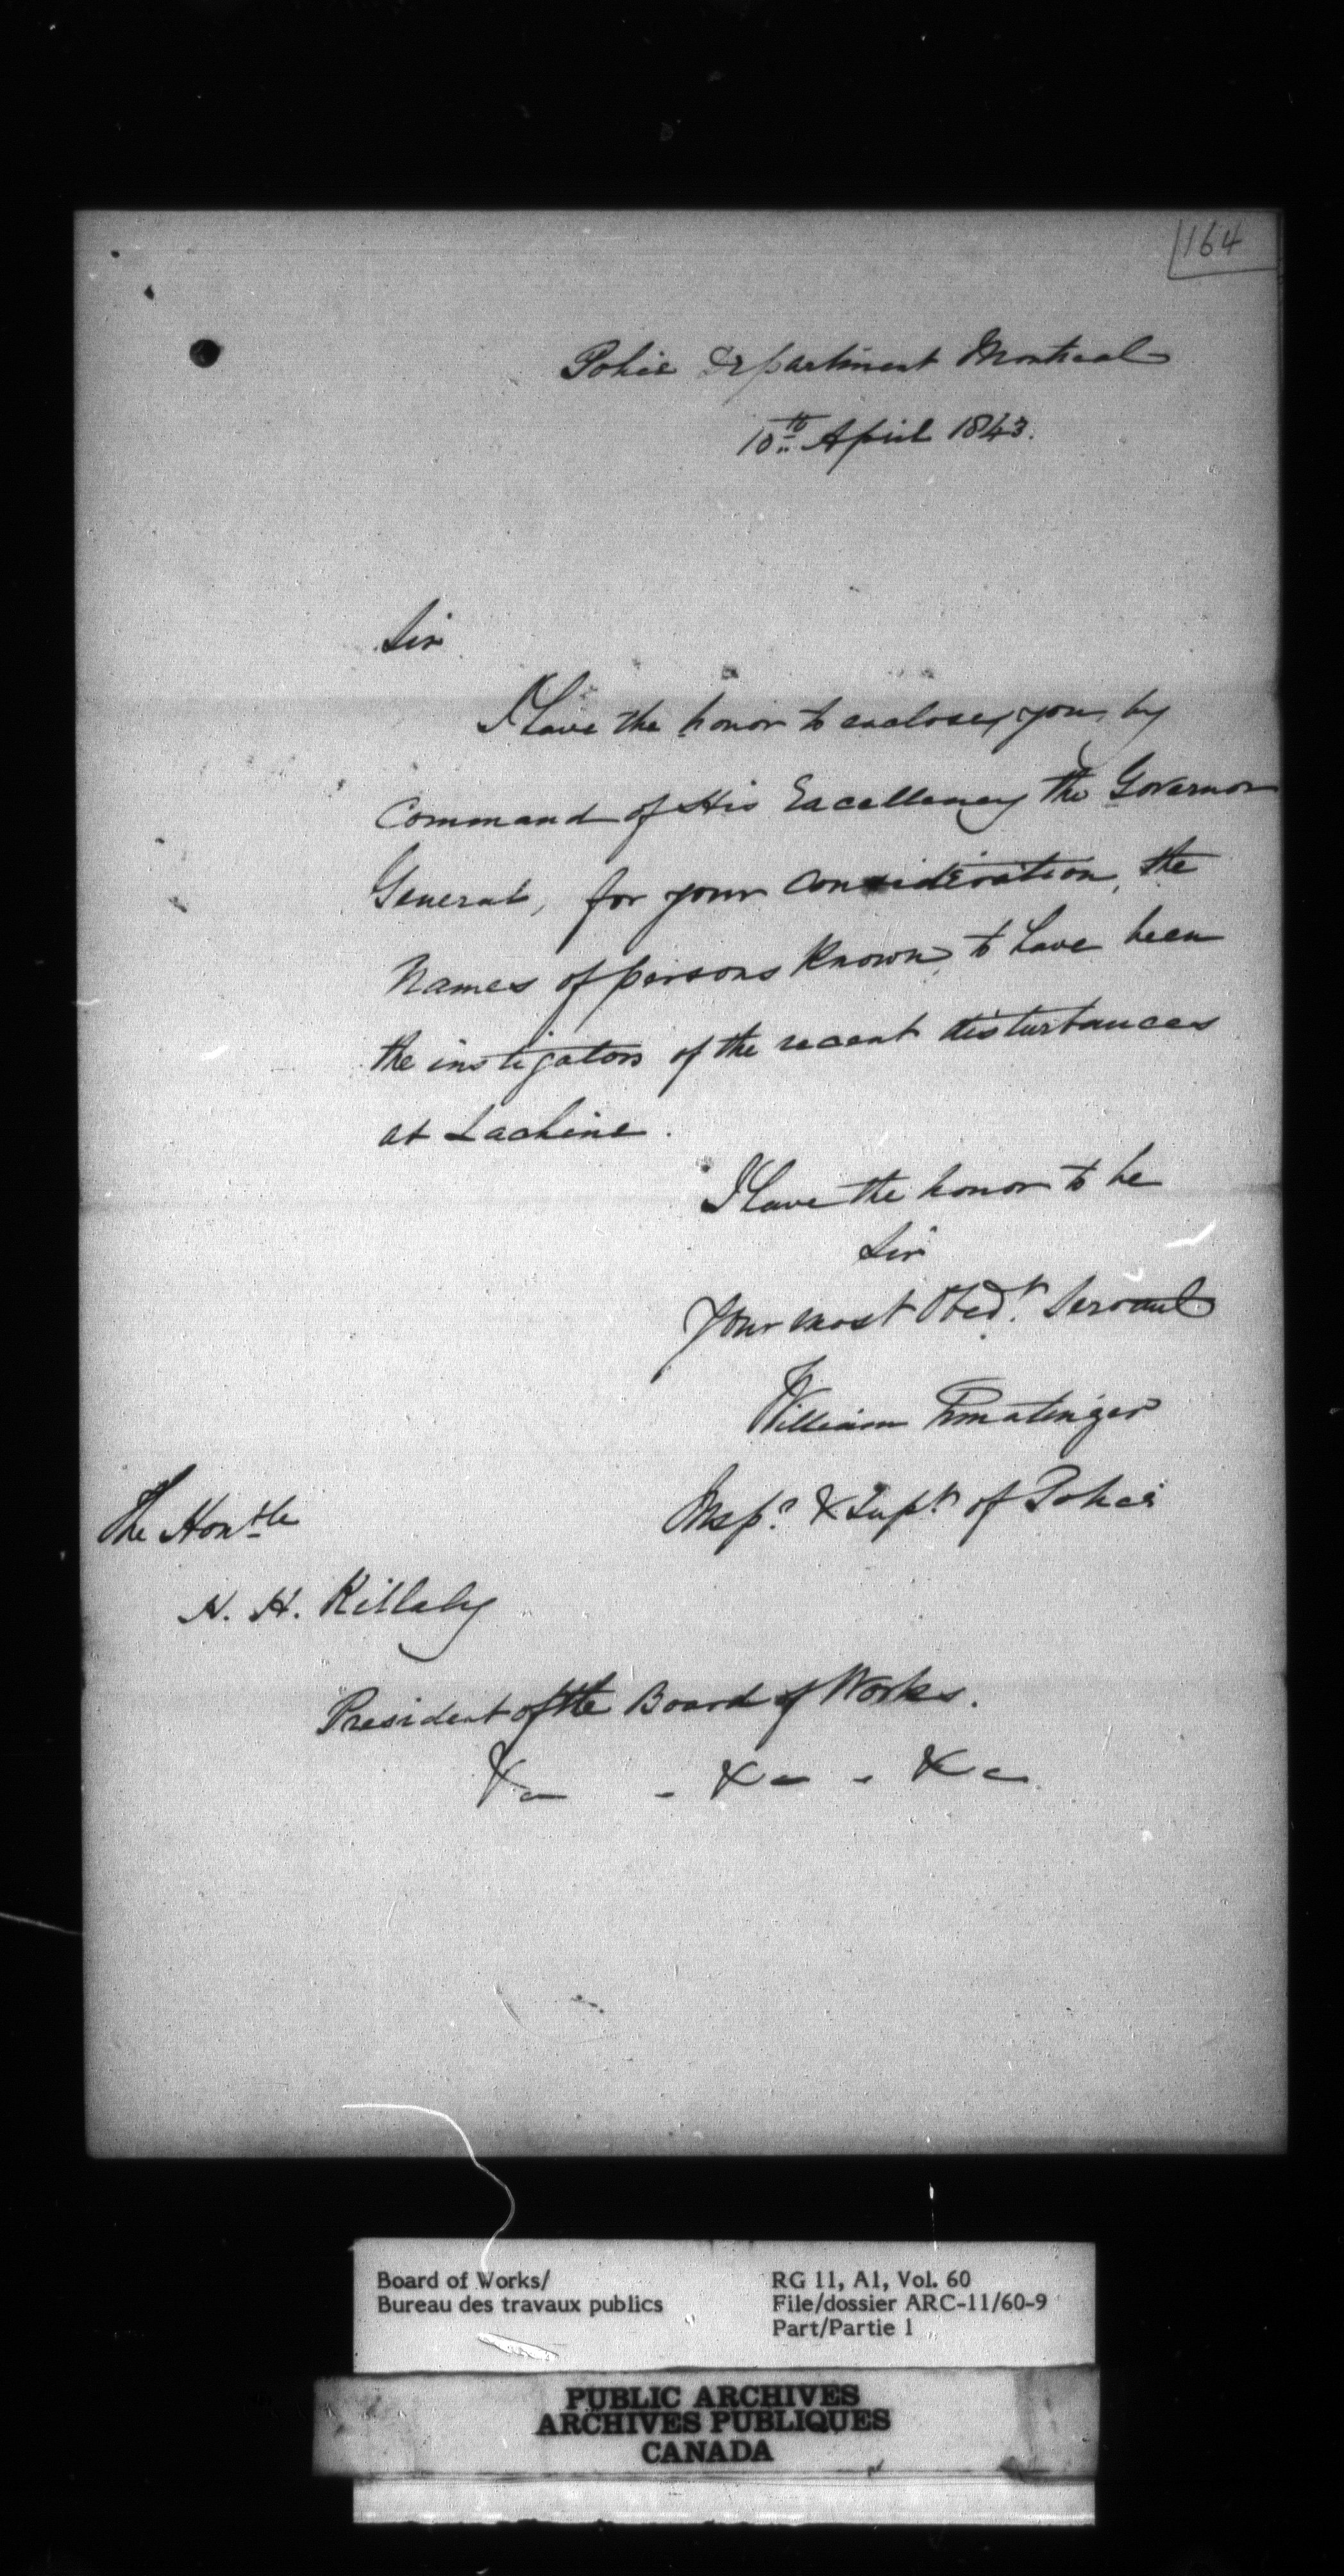 164
Police Department Montreal
10th April 1843.
Sir
I have the honor to enclose, you, by
Command of His Excellency the Governor
General, for your consideration, the
Names of persons known to have been
the instigators of the recent disturbances
at Lachine.
I have the honor to be
Sir
Your most Obedt. Servant
William Ermatinger
Insp.r & Supt. of Police
The Honble
H. H. Killaly
President of the Board of Works.
&c - &c - &c
Board of Works/
Bureau des travaux publics
RG 11, A1, Vol. 60
File/dossier ARC-11/60-9
Part/Partie 1
PUBLIC ARCHIVES
ARCHIVES PUBLIQUES
CANADA